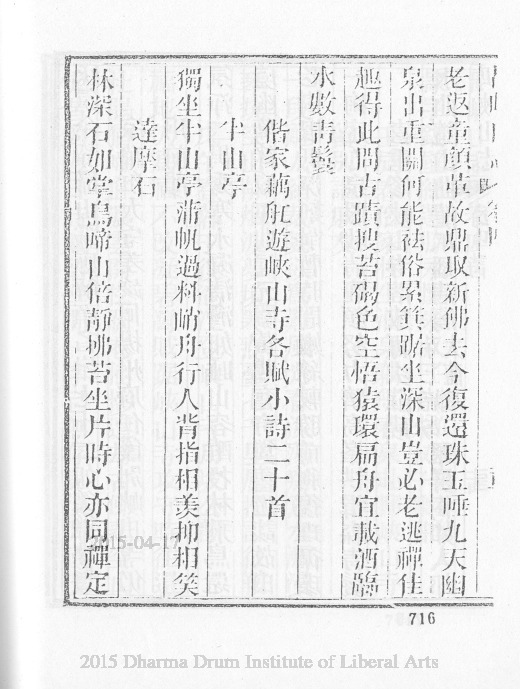 老返童顏革故鼎取新佛去今復還珠玉唾九天幽
泉出重關何能袪俗累箕踞坐深山豈必老逃禪佳
趣得此間古蹟搜苔碣色空悟猿環扁舟宜載酒臨
水數青鬟
偕家藕舡遊峽山寺各賦小詩二十首
半山亭
獨坐半山亭蒲帆過料峭舟行人背指相羨抑相笑
達摩石
林深石如掌鳥啼山倍靜拂苔坐片時心亦同禪定
716
2015-04-17
2015 Dharma Drum Institute of Liberal Arts